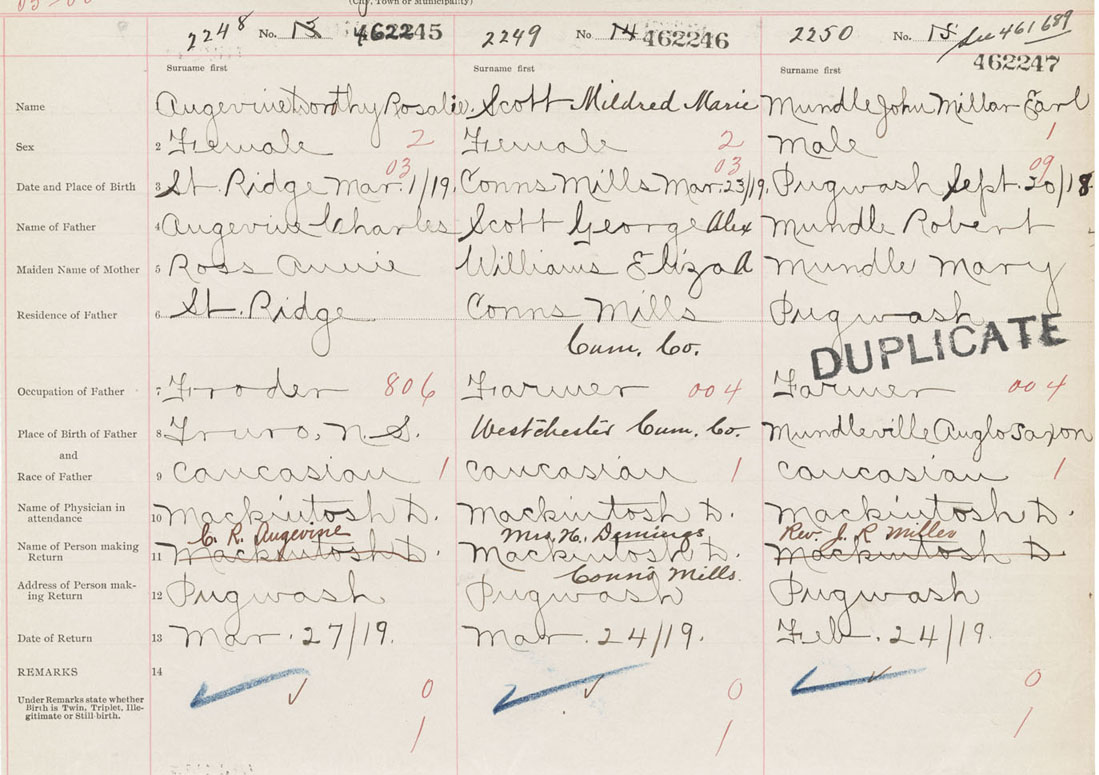 (City, Town or Municipality)
2248 No. 13 462245 2249 No 14 462246 2250 No. 15 See 461689 462247
Surname first Surname first Surname first
Name Augevine Dorothy Rosalie. Scott Mildred Marie Mundle John Millar Earl
Sex 2 Female 2 Female 2 Male 1
03 03 09
Date and Place of Birth 3 St. Ridge Mar. 1/19. Conns Mills Mar. 23/19. Pugwash Sept. 20/18
Name of Father 4 Augevine Charles Scott George Alex Mundle Robert
Maiden Name of Mother 5 Ross Annie Williams Eliza A Mundle Mary
Residence of Father 6 St. Ridge Conns Mills Pugwash
Cum. Co.
DUPLICATE
Occupation of Father 7 806 Farmer 004 Farmer 004
Place of Birth of Father 8 Truro, N.S. Westchester Cum. Co. Mundleville Anglo Saxon
and
Race of Father 9 Caucasian 1 Caucasian 1 Caucasian 1
Name of Physician in
attendance 10 Mackintosh D. Mackintosh D. Mackintosh D.
C. R. Augevine Mrs. H. Rev. J. R Miller
Name of Person making
Return 11 Mackintosh D. Mackintosh D. Mackintosh D
Conn's Mills.
Address of Person mak-
ing Return 12 Pugwash Pugwash Pugwash
Date of Return 13 Mar. 27/19. Mar. 24/19. Feb. 24/19.
REMARKS 14
Under Remarks state whether
Birth is Twin, Triplet, Ille-
gitimate or Still-birth.
0 0 0
1 1 1